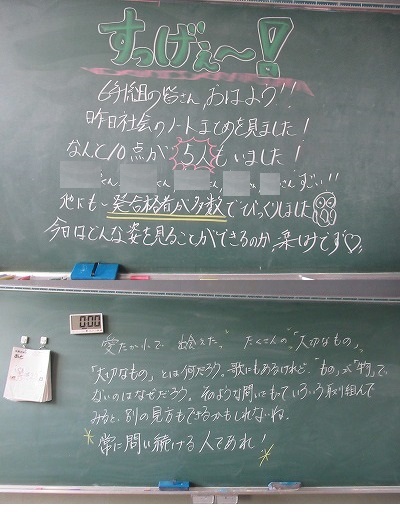 すっげぇ〜!
6年1組の皆さん、おはよう!!
昨日社会のノートまとめを見ました!
なんと10点が5人もいました!
さん、さん、さん、さん、さんすごい!!
他にも一発合格者が多数でびっくりしました
今日はどんな姿を見ることができるのか、楽しみです♡
0:00
愛たか小で、 たくさんの"大切なもの"、
「大切なもの」とは何だろう。歌にもあるけれど、"もの"が"物"で
ないのはなぜだろう。そのような問いをもっていろいろ取り組んで
みると、別の見方もできるかもしれないね。
常に問い続ける人であれ!